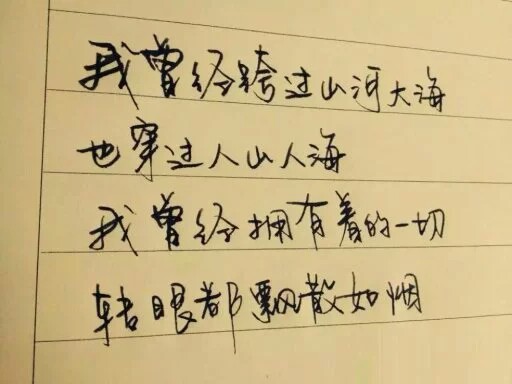 我曾经跨过山河大海
也穿过人山人海
我曾经拥有着的一切
转眼都飘散如烟